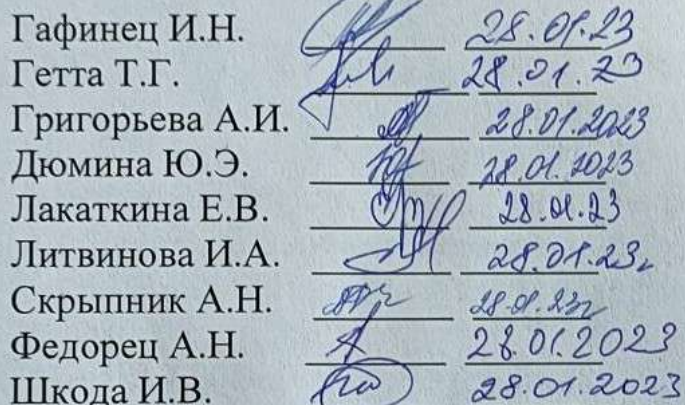 Гафинец И.Н. 28.01.23
Гетта Т.Г. 28.01.23
Григорьева А.И. 28.01.2023
Дюмина Ю.Э. 28.01.2023
Лакаткина Е.В. 28.01.23
Литвинова И.А. 28.01.23г
Скрыпник А.Н. 28.01.23г
Федорец А.Н. 28.01.2023
Шкода И.В. 28.01.2023